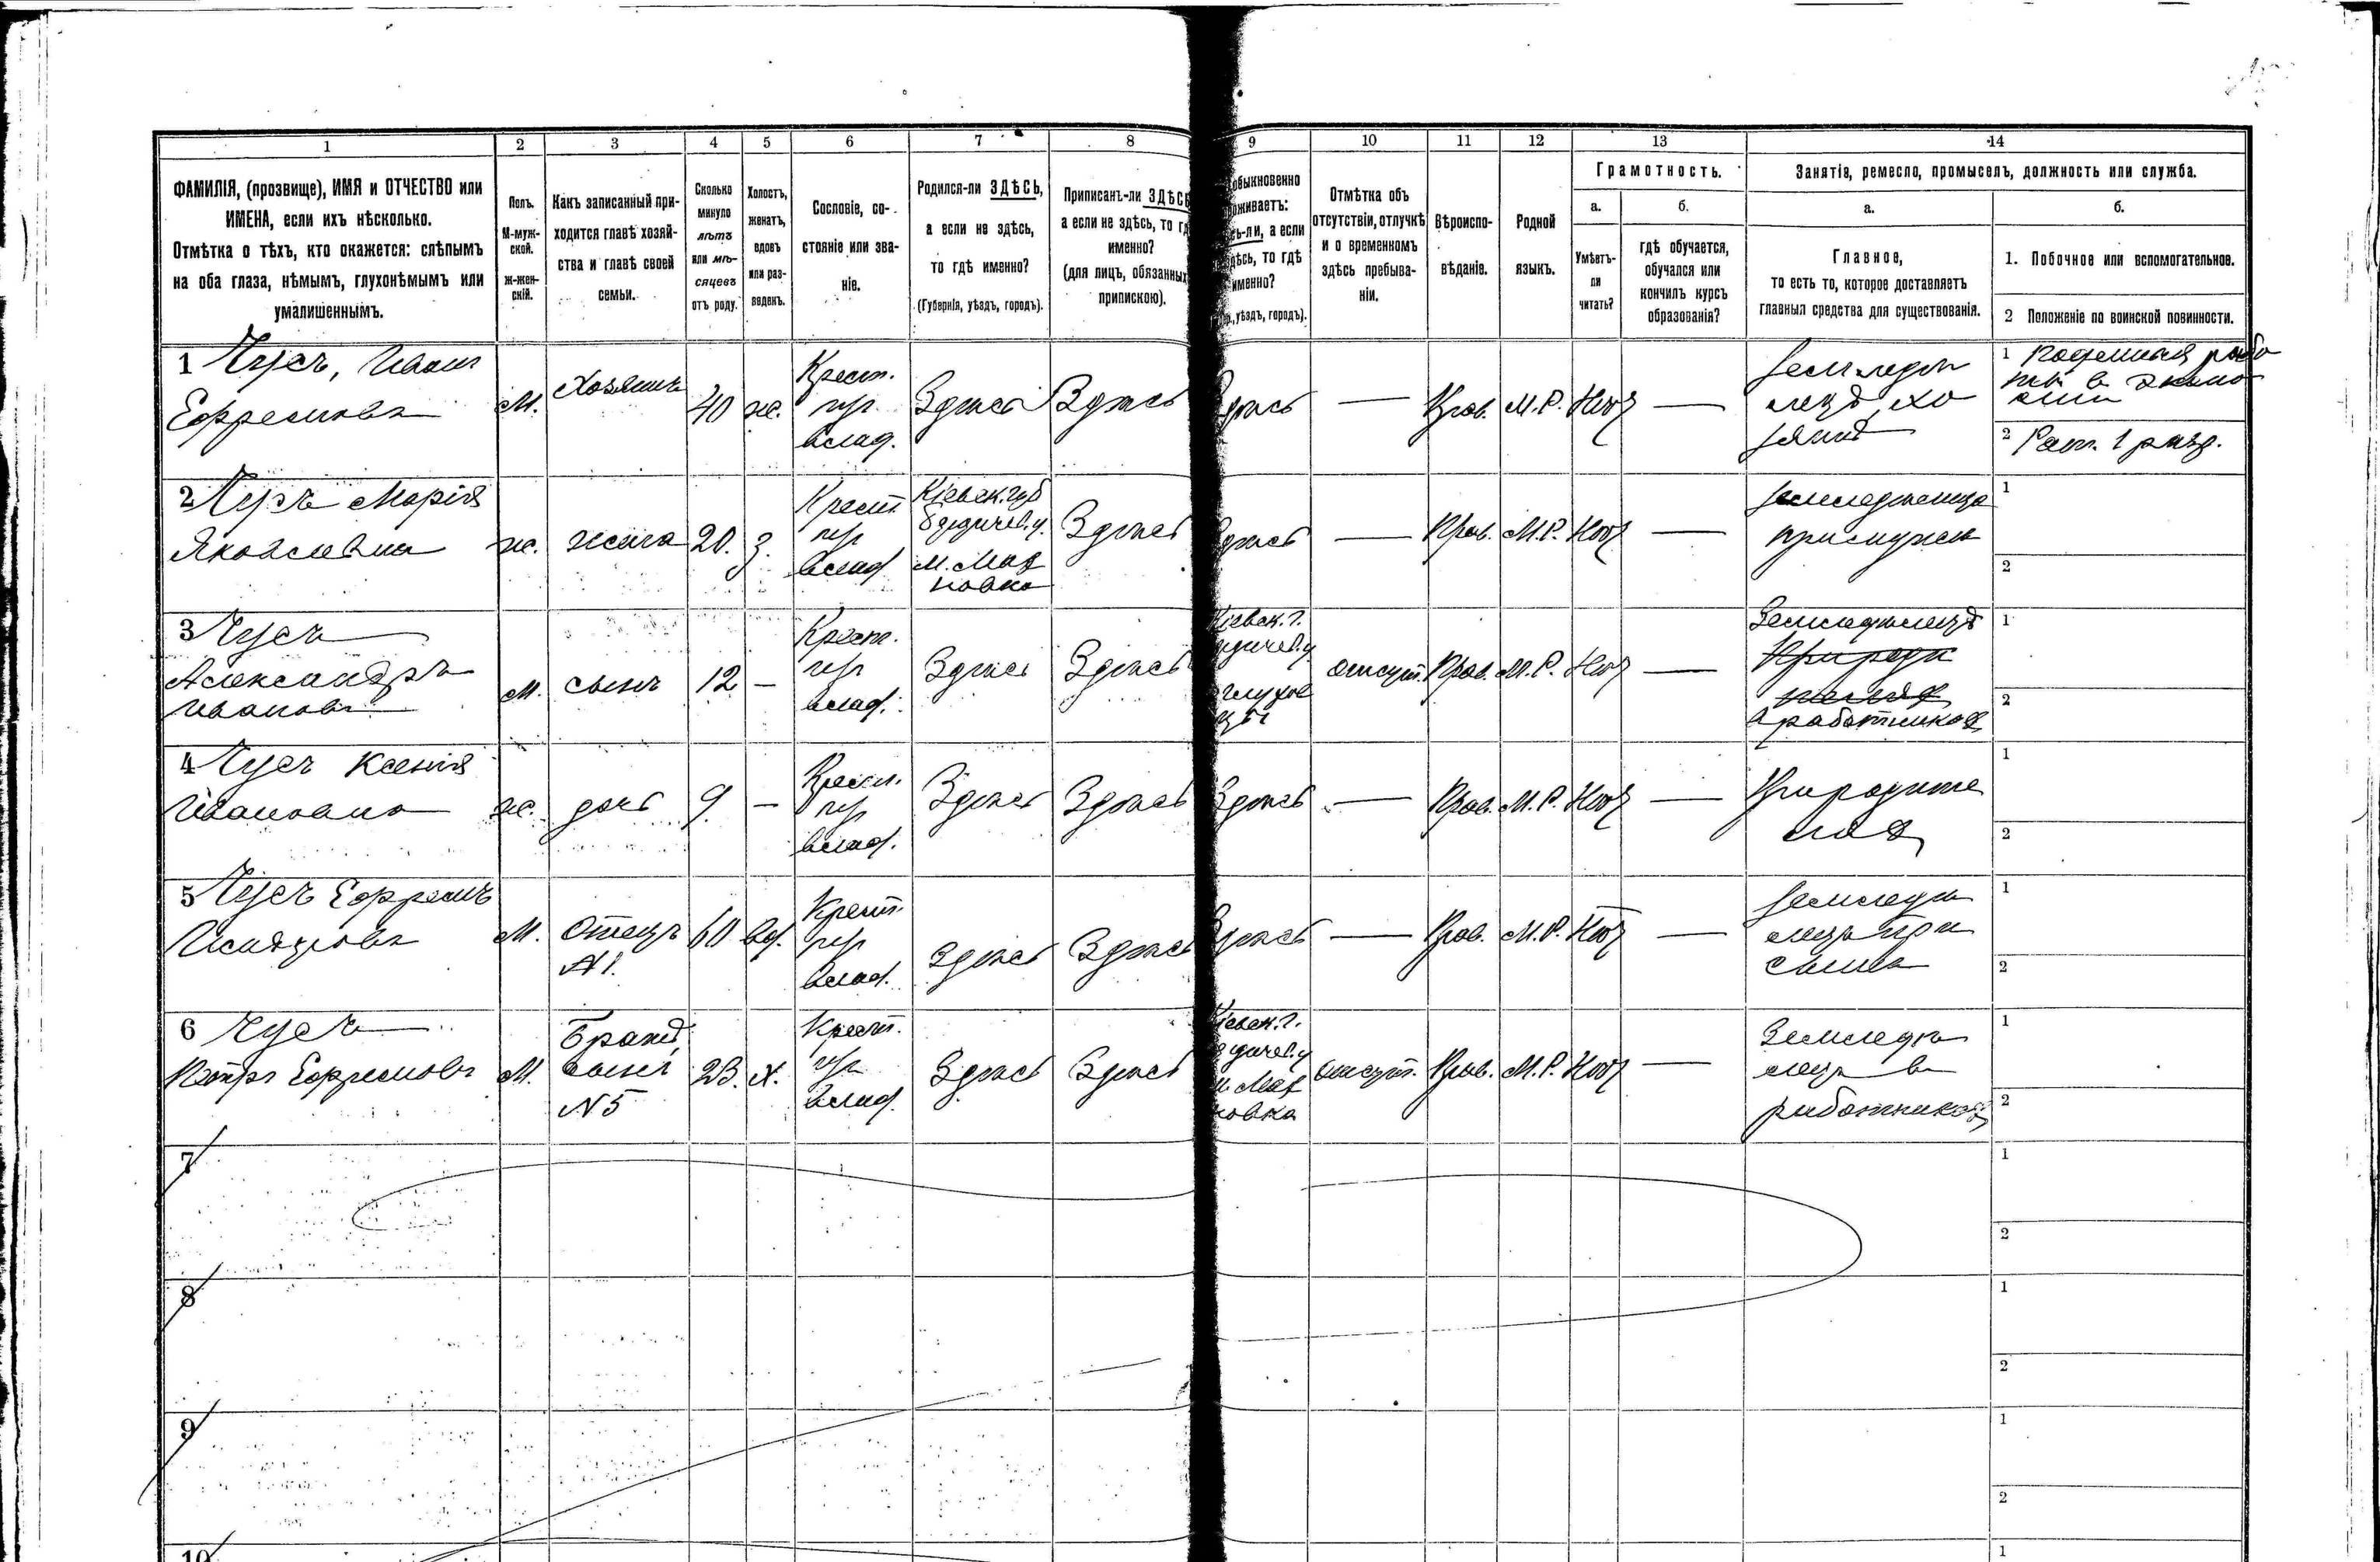 1
2
3
4
5
6
7
8
9
10
11
12
13
14
ФАМИЛІЯ, (прозвище), ИМЯ и ОТЧЕСТВО или
ИМЕНА, если ихъ нѣсколько.
Отмѣтка о тѣхъ, кто окажется: слѣпымъ
на оба глаза, нѣмымъ, глухонѣмымъ или
умалишеннымъ.
Полъ.
М-муж-
ской.
Ж-жен-
скій.
Какъ записанный при-
ходится главѣ хозяй-
ства и главѣ своей
семьи.
Сколько
минуло
лѣтъ
или мѣ-
сяцевъ
отъ роду.
Холостъ,
женатъ,
вдовъ
или раз-
веденъ.
Сословіе, со-
стояніе или зва-
ніе.
Родился-ли ЗДѢСЬ,
а если не здѣсь,
то гдѣ именно?
(Губернія, уѣздъ, городъ).
Приписанъ-ли ЗДѢСЬ
а если не здѣсь, то г
именно?
(для лицъ, обязанны
припискою).
быкновенно
оживаетъ:
ь-ли, а если
ѣсь, то гдѣ
именно?
, уѣздъ, городъ).
Отмѣтка объ
отсутствіи, отлучкѣ
и о временномъ
здѣсь пребыва-
ніи.
Вѣроиспо-
вѣданіе.
Родной
языкъ.
Грамотность.
а.
Умѣетъ-
ли
читать?
б.
гдѣ обучается,
обучался или
кончилъ курсъ
образованія?
Занятія, ремесло, промыселъ, должность или служба.
а.
Главное,
то есть то, которое доставляетъ
главныя средства для существованія.
б.
1. Побочное или вспомогательное.
2 Положеніе по воинской повинности.
1 Чусъ, Иванъ
Ефремовъ
М.
Хозяинъ
40
ж.
Крест.
влад.
Здѣсь
Здѣсь
дѣсь
—
Прав.
М.Р.
Нѣт
—
Земледѣ
лецъ, хо
зяинъ
1
2
2 Чусъ Марія
Яковлевна
ж.
жена
20.
з.
Крест
влад
Кіевск. губ
Бердичев. у.
м. Мах
новка
Здѣсь
дѣсь
—
Прав.
М.Р.
Нѣт
—
Земледѣлица
при мужѣ
1
2
3 Чусъ
Александръ
Ивановъ
М.
сынъ
12
—
Крест.
влад.
Здѣсь
Здѣсь
Кіевск. г.
рдичев. у
глухов
цы
отсут.
Прав.
М.Р.
Нѣт
—
Земледѣлецъ
в работникахъ
1
2
4 Чусъ Ксенія
Ивановна
ж.
дочь
9.
—
Крест.
влад.
Здѣсь
Здѣсь
Здѣсь
—
Прав.
М.Р.
Нѣт
—
При родите
ляхъ
1
2
5 Чусъ Ефремъ
М.
Отецъ
№ 1.
60
вд.
Крест.
влад.
Здѣсь
Здѣсь
Здѣсь
—
Прав.
М.Р.
Нѣт
—
Земледѣ
лецъ при
сынѣ
1
2
6 Чусъ
Петръ Ефремовъ
М.
Братъ,
сынъ
№ 5
23.
х.
Крест.
влад.
Здѣсь
Здѣсь
Кіевск. г.
рдичев. у
м. Мах
новка
отсут.
Прав.
М.Р.
Нѣт
—
Земледѣ
лецъ в
работникахъ
1
2
7
1
2
8
1
2
9
1
2
10
1